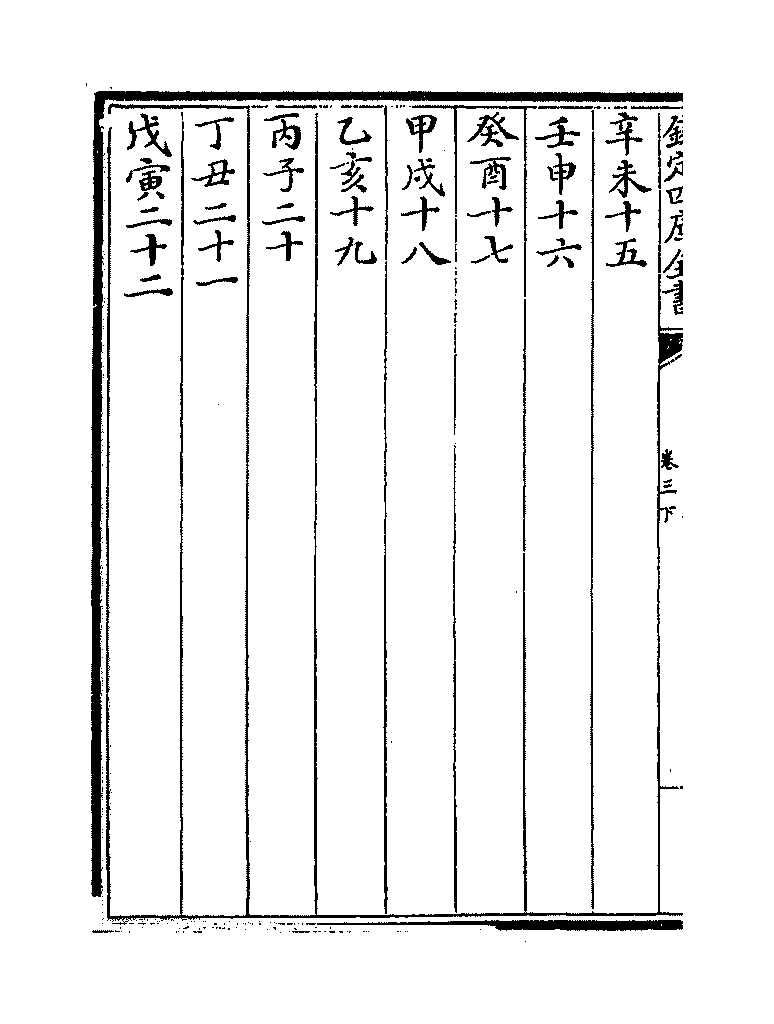 欽定四庫全書
卷三下
辛未十五
壬申十六
癸酉十七
甲戌十八
乙亥十九
丙子二十
丁丑二十一
戊寅二十二